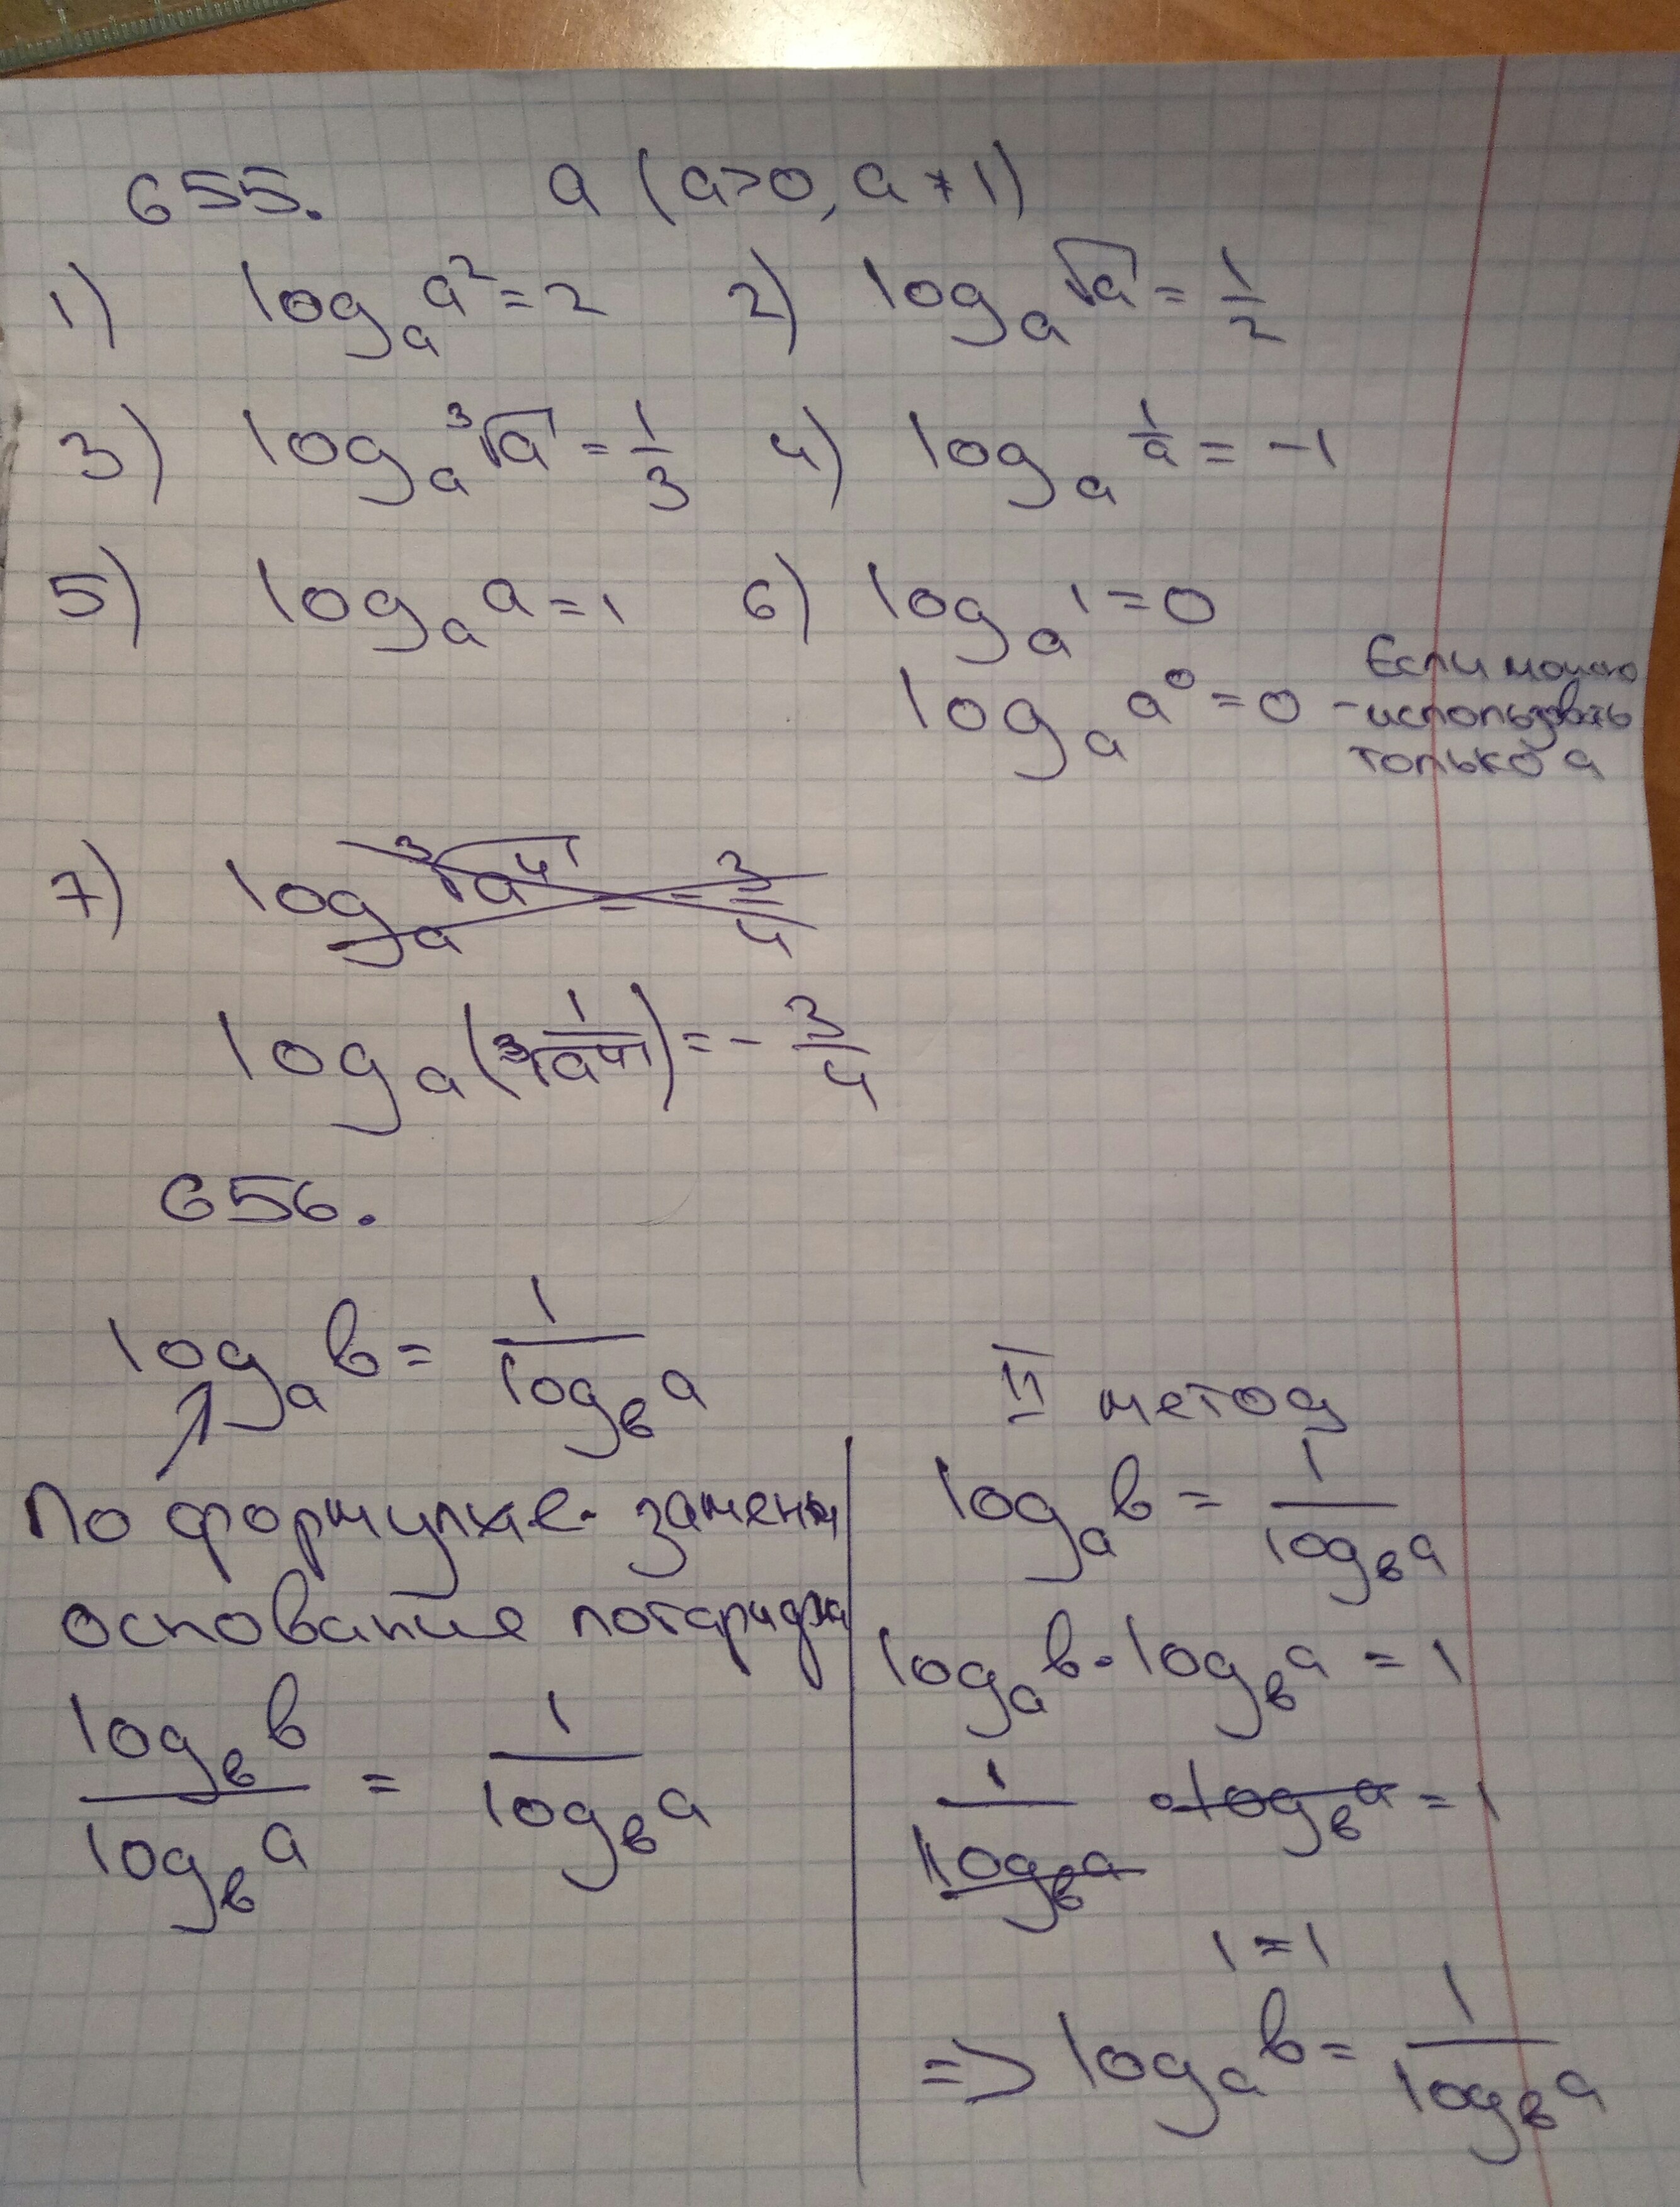 655. a (a>0, a≠1)
1) logₐ a² = 2 2) logₐ √a = 1/2
3) logₐ ³√a = 1/3 4) logₐ 1/a = -1
5) logₐ a = 1 6) logₐ 1 = 0
logₐ a⁰ = 0 - Если можно
использовать
только a
7) logₐ ³√a⁴ = -3/4
logₐ (1/³√a⁴) = -3/4
656.
logₐ в = 1/log_в a
По формулке замены
основание логарифма
log_в в / log_в a = 1/log_в a
II метод
logₐ в = 1/log_в a
logₐ в · log_в a = 1
1/log_в a · log_в a = 1
1 = 1
=> logₐ в = 1/log_в a